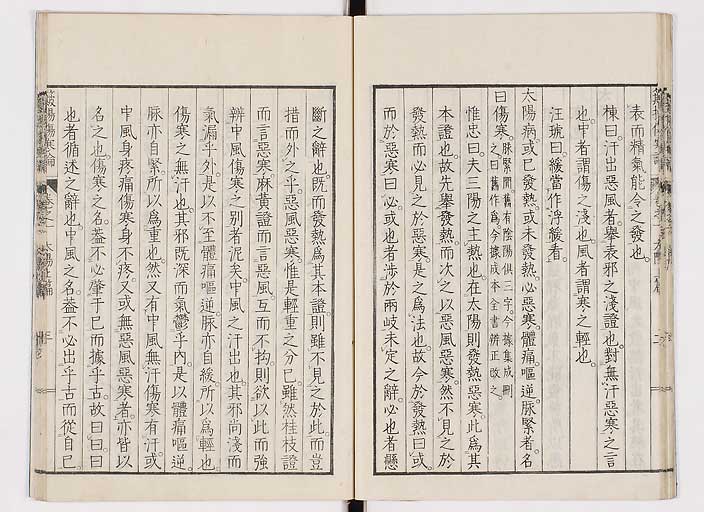 表而精氣能令之發也。
棟曰。汗出惡風者。舉表邪之淺證也。對無汗惡寒之言
也。中者謂傷之淺也。風者謂寒之輕也。
汪琥曰。緩當作浮緩看。
太陽病。或已發熱。或未發熱。必惡寒。體痛。嘔逆。脉緊者。名
曰傷寒。脉緊間。舊有陰陽俱三字。今據集成刪之。曰舊作為。今據成本全書辨正改之。
惟忠曰。夫三陽之主熱也。在太陽則發熱惡寒。此為其
本證也。故先舉發熱。而次之以惡風惡寒。然不見之於
發熱。而必見之於惡寒。是之為法也。故今於發熱曰或。
而於惡寒曰必。或也者。涉於兩岐未定之辭。必也者。懸
斷之辭也。既而發熱。為其本證。則雖不見之於此。而豈
措而外之乎。惡風惡寒。惟是輕重之分已。雖然。桂枝證
而言惡寒。麻黃證而言惡風。互而不拘。則欲以此而強
辨中風傷寒之別者泥矣。中風之汗出也。其邪尚淺。而
氣漏乎外。是以不至體痛嘔逆。脉亦自緩。所以為輕也。
傷寒之無汗也。其邪既深。而氣鬱乎內。是以體痛嘔逆。
脉亦自緊。所以為重也。然又有中風無汗。傷寒有汗。或
中風身疼痛。傷寒身不疼。又或無惡風惡寒者。亦皆以
名之也。傷寒之名。葢不必肇于巳。而據乎古。故曰。曰
也者。循述之辭也。中風之名。葢不必出乎古。而從自己。